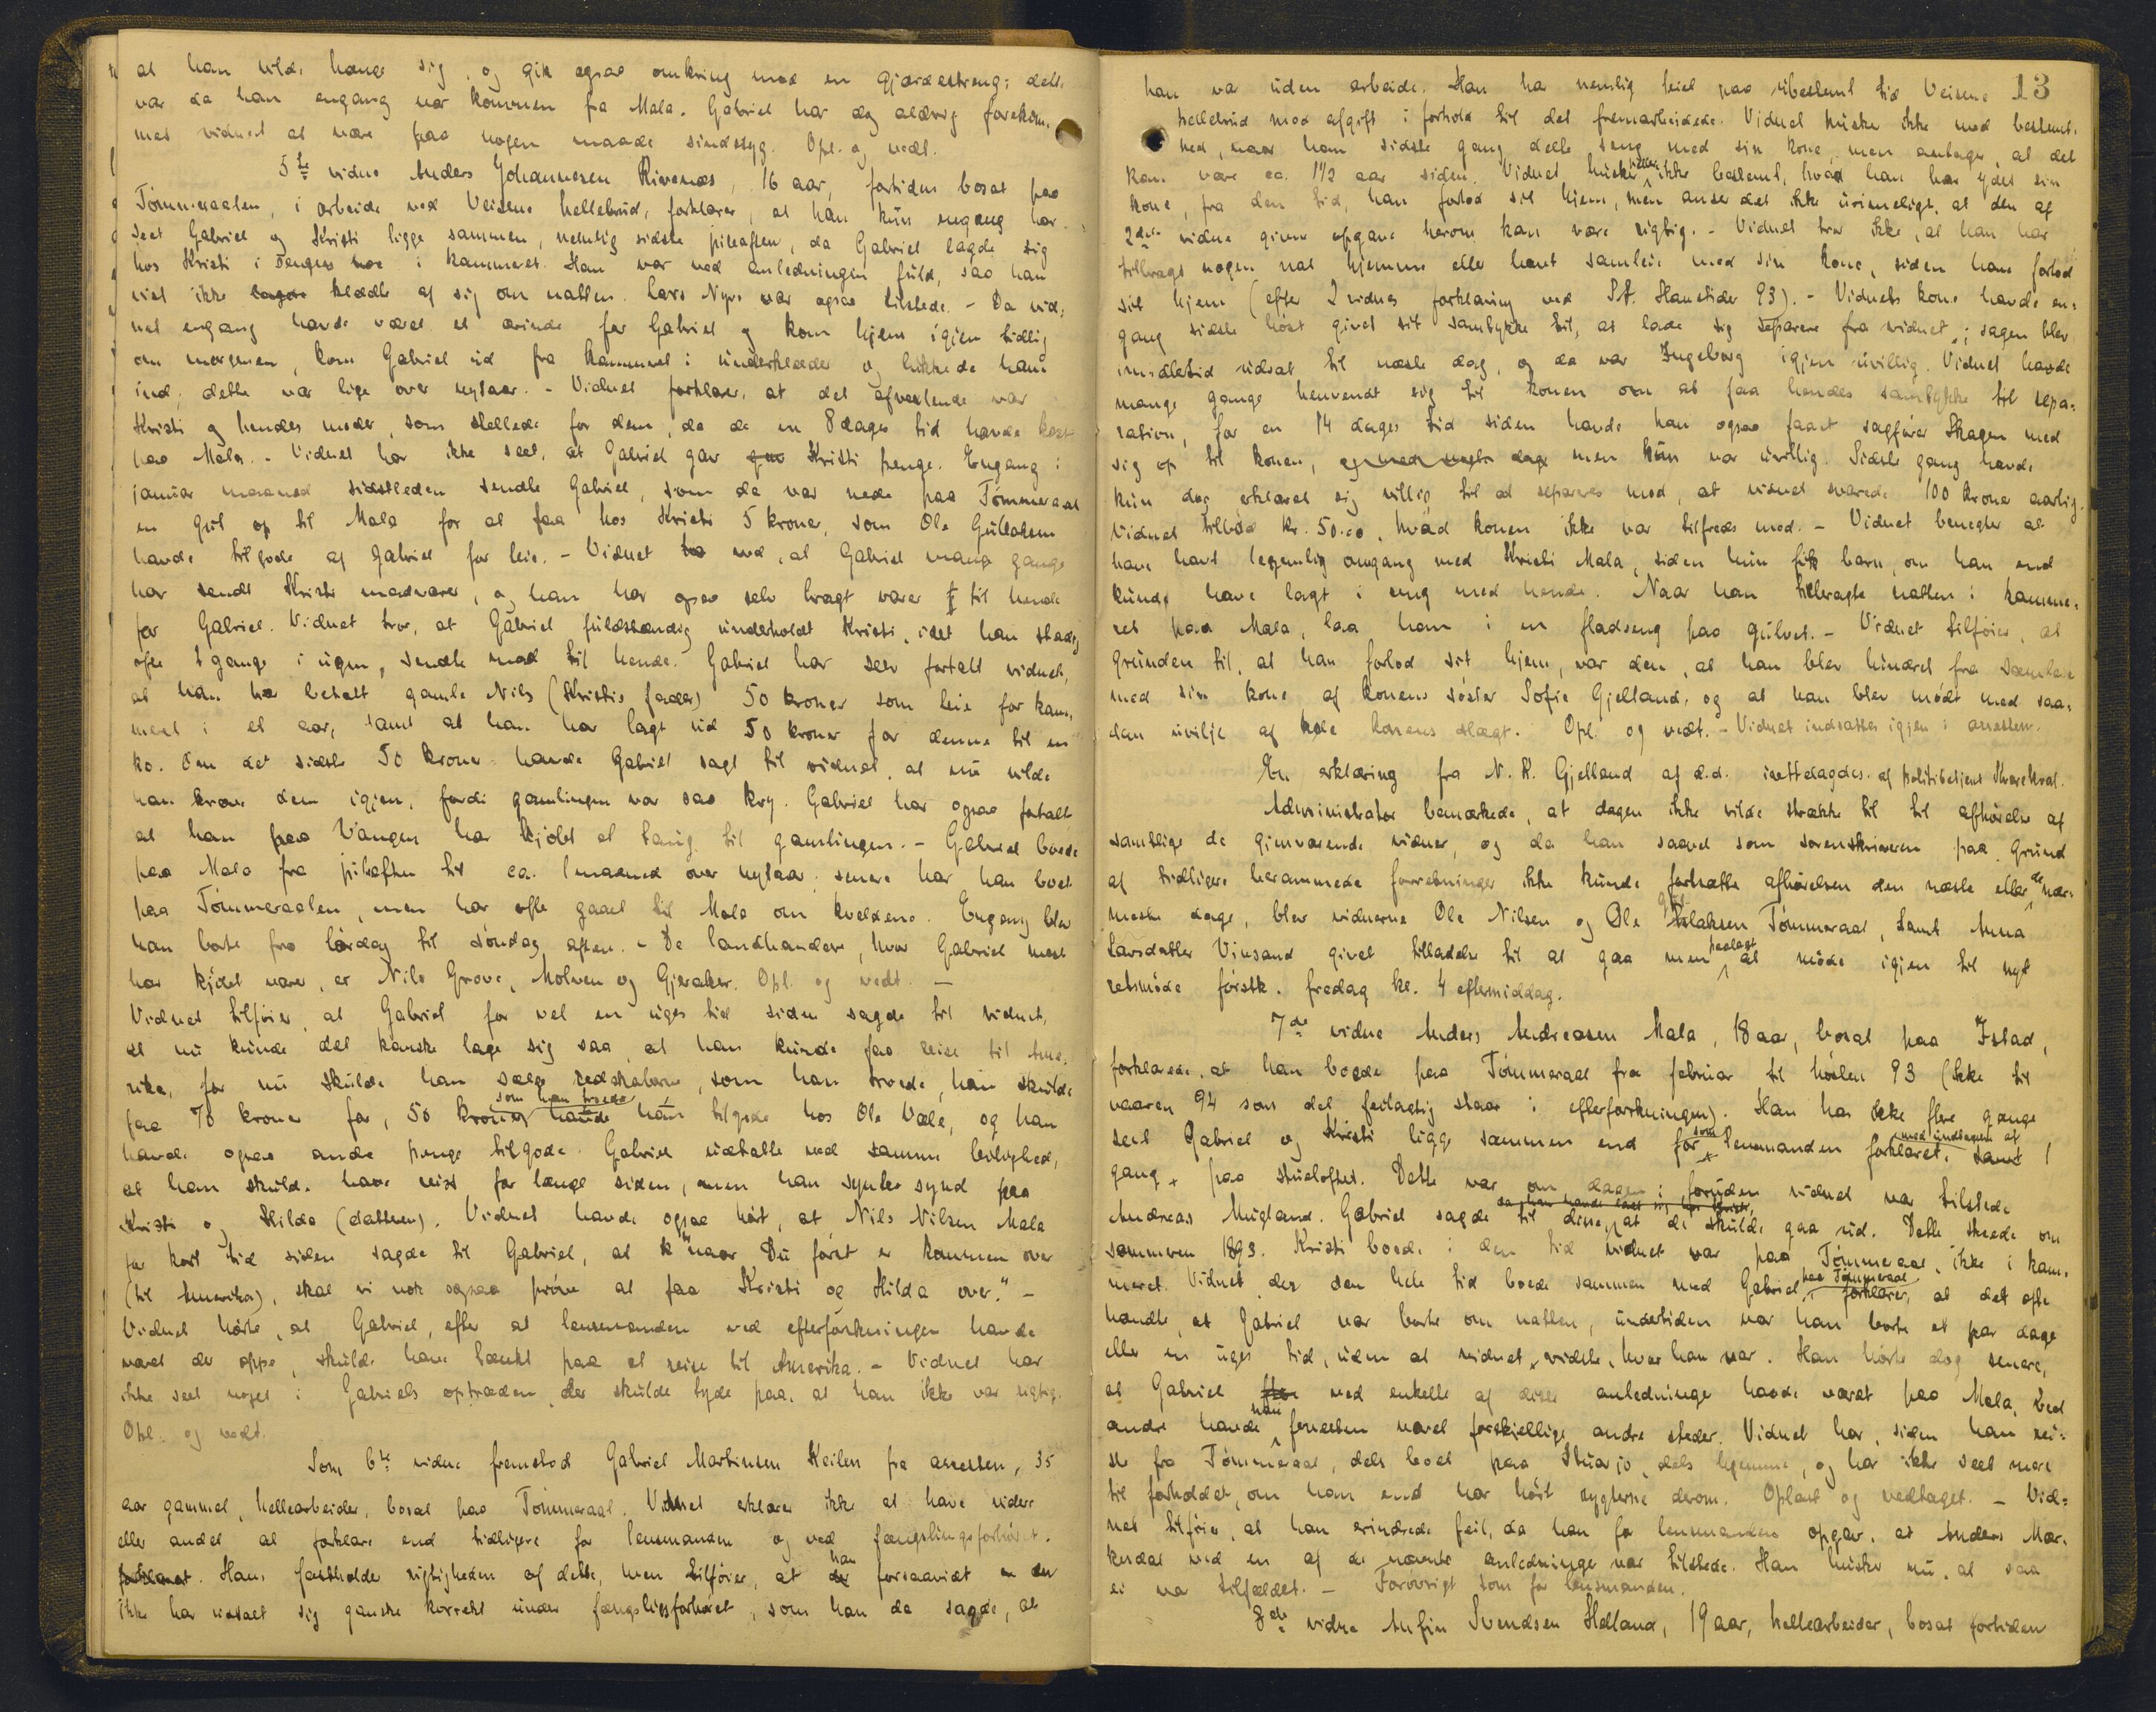 at han vilde hænge sig, og gik ogsaa omkring med en gjærdestreng; dette
var da han engang var kommen fra Mala. Gabriel har dog aldrig forekom-
met vidnet at være paa nogen maade sindssyg. Opl. og vedt.
5te vidne Anders Johannesen Rivenæs, 16 aar, fortiden bosat paa
Tømmeraalen, i arbeide ved Veisene hellebrud, forklarer, at han kun engang har
seet Gabriel og Kristi ligge sammen, nemlig sidste juleaften, da Gabriel lagde sig
hos Kristi i sengen hos i kammeret. Han var ved anledningen fuld, saa han
vist ikke lagde klædte af sig om natten. Lars Nyre var ogsaa tilstede. - Da vid-
net engang havde været et ærinde for Gabriel og kom hjem igjen tidlig
om morgenen, kom Gabriel ud fra kammeret i underklæder og lukkede ham
ind; dette var lige over nytaar. - Vidnet forklarer, at det afvexlende var
Kristi og hendes moder, som stellede for dem, da de en 8 dages tid havde kost
paa Mala. - Vidnet har ikke seet, at Gabriel gav Kristi penge. Engang i
januar maaned sidstleden sendte Gabriel, som da var nede paa Tømmeraal
en gut op til Mala for at faa hos Kristi 5 kroner, som Ole Gullaksen
havde tilgode af Gabriel for leie. - Vidnet ved, at Gabriel mange gange
har sendt Kristi madvarer, og han har ogsaa selv bragt varer til hende
for Gabriel. Vidnet tror, at Gabriel fuldstændig underholdt Kristi, idet han stadig
ofte 2 gange i ugen, sendte mad til hende. Gabriel har selv fortalt vidnet,
at han har betalt gamle Nils (Kristis fader) 50 kroner som leie for kam-
meret i et aar, samt at han har lagt ud 50 kroner for denne til en
ko. Om det sidste 50 kroner havde Gabriel sagt til vidnet, at nu vilde
han kræve dem igjen, fordi gamlingen var saa kry. Gabriel har ogsaa fortalt
at han paa Vangen har kjøbt et tøug til gamlingen. - Gabriel boede
paa Mala fra juleaften til ca. 1 maaned over nytaar; senere har han boet
paa Tømmeraalen, men har ofte gaaet til Mala om kveldene. Engang blev
han borte fra lørdag til søndag aften. - De landhandlere, hvor Gabriel mest
har kjøbt varer, er Nils Grove, Molven og Gjeraker. Opl. og vedt. -
Vidnet tilføier, at Gabriel for vel en uges tid siden sagde til vidnet,
at nu kunde det kanske lage sig saa, at han kunde faa reise til Ame-
rika, for nu skulde han sælge redskaberne, som han troede, han skulde
som han troede
faa 70 kroner for, 50 kroner havde han tilgode hos Ole Væle, og han
havde ogsaa andre penge tilgode. Gabriel udtalte ved samme leilighed,
at han skulde have reist for længe siden, men han syntes synd paa
Kristi og Hilda (datteren). Vidnet havde ogsaa hørt, at Nils Nilsen Mala
for kort tid siden sagde til Gabriel, at "naar Du først er kommen over
(til Amerika), skal vi nok ogsaa prøve at faa Kristi og Hilda over." -
Vidnet hørte, at Gabriel, efter at lensmanden ved efterforskningen havde
været der oppe, skulde have tænkt paa at reise til Amerika. - Vidnet har
ikke seet noget i Gabriels optræden der skulde tyde paa, at han ikke var rigtig.
Opl. og vedt.
Som 6te vidne fremstod Gabriel Martinsen Keilen fra arresten, 35
aar gammel, hellearbeider, bosat paa Tømmeraal. Vidnet erklærer ikke at have videre
eller andet at forklare end tidligere for lensmanden og ved fængslingsforhøret.
han
forklaret. Han fastholder rigtigheden af dette, men tilføier, at forsaavidt
ikke har udtalt sig ganske korrekt under fængslingsforhøret, som han da sagde, at
13
han var uden arbeide. Han har nemlig leiet paa ubestemt tid Veisene
hellebrud mod afgift i forhold til det fremarbeidede. Vidnet husker ikke med bestemt-
hed, naar han sidste gang delte seng med sin kone, men antager, at det
heller
kan være ca. 1 1/2 aar siden. Vidnet husker ikke bestemt, hvad han har ydet sin
kone, fra den tid, han forlod sit hjem, men anser det ikke urimeligt, at den af
2det vidne givne opgave herom kan være rigtig. - Vidnet tror ikke, at han har
tilbragt nogen nat hjemme eller havt samleie med sin kone, siden han forlod
sit hjem (efter 2 vidnes forklaring ved St. Hanstider 93). - Vidnets kone havde en-
gang sidste høst givet sit samtykke til, at lade sig separere fra vidnet; sagen blev
imidlertid udsat til næste dag, og da var Ingeborg igjen uvillig. Vidnet havde
mange gange henvendt sig til konen om at faa hendes samtykke til sepa-
ration, for en 14 dages tid siden havde han ogsaa faaet sagfører Skagen med
sig op til konen, men hun var uvillig. Sidste gang havde
hun dog erklæret sig villig til at separeres mod, at vidnet svarede 100 kroner aarlig.
Vidnet tilbød kr. 50.00, hvad konen ikke var tilfreds med. - Vidnet benegter at
have havt legemlig omgang med Kristi Mala, siden hun fik barn, om han end
kunde have lagt i seng med hende. Naar han tilbragte natten i kamme-
ret paa Mala, laa han i en fladseng paa gulvet. - Vidnet tilføier, at
grunden til, at han forlod sit hjem, var den, at han blev hindret fra samleie
med sin kone af konens søster Sofie Gjelland, og at han blev mødt med saa-
dan uvilje af hele konens slægt. Opl. og vedt. - Vidnet indsattes igjen i arresten.
En erklæring fra N. K. Gjelland af d.d. irettelagdes af politibetjent Skorekval.
Administrator bemærkede, at dagen ikke vilde strække til til afhørelse af
samtlige de gjenværende vidner, og da han saavel som sorenskriveren paa grund
af tidligere berammede forretninger ikke kunde fortsætte afhørelsen den næste eller de nær-
meste dage, blev vidnerne Ole Nilsen og Ole Gullaksen Tømmeraal, samt Anna
paalagt
Larsdatter Vinsand givet tilladelse til at gaa men at møde igjen til nyt
retsmøde førstk. fredag kl. 4 eftermiddag.
7de vidne Anders Andreasen Mala, 18 aar, bosat paa Istad,
forklarede, at han boede paa Tømmeraal fra februar til høsten 93 (ikke til
vaaren 94 som det feilagtig staar i efterforskningen). Han har ikke flere gange
som med undtagelse af
seet Gabriel og Kristi ligge sammen end for lensmanden forklaret, samt 1
gang paa stueloftet. Dette var om dagen; foruden vidnet var tilstede
da han havde lagt sig hos Kristi,
Andreas Mugland. Gabriel sagde til disse, at de skulde gaa ud. Dette skede om
sommeren 1893. Kristi boede i den tid vidnet var paa Tømmeraal, ikke i kam-
paa Tømmeraal
meret. Vidnet der den hele tid boede sammen med Gabriel, forklarer, at det ofte
hændte, at Gabriel var borte om natten, undertiden var han borte et par dage
eller en uges tid, uden at vidnet vidste, hvor han var. Han hørte dog senere,
at Gabriel ved enkelte af disse anledninger havde været paa Mala, ved
han
andre havde forresten været forskjellige andre steder. Vidnet har, siden han rei-
ste fra Tømmeraal, dels boet paa Skiarjo, dels hjemme, og har ikke seet mere
til forholdet, om han end har hørt rygterne derom. Oplæst og vedtaget. - Vid-
net tilføier, at han erindrede feil, da han for lensmanden opgav, at Anders Mør-
kesdal ved en af de nævnte anledninger var tilstede. Han husker nu, at saa
ei var tilfældet. - Forøvrigt som for lensmanden.
8de vidne Anfin Svendsen Helland, 19 aar, hellearbeider, bosat fortiden